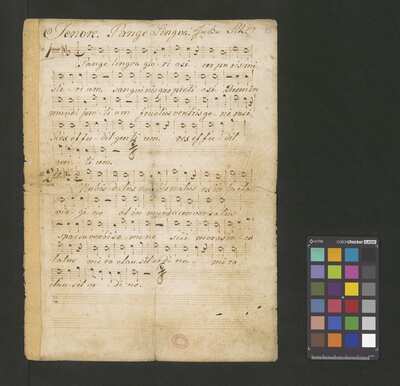 Tenore. Pange Lingua.
Pange lingua glo ri osi cor po ris mi
ste ri um sanguinisque preti osi
mundi pre ti um fructus ventris ge ne rosi
Rex effu dit gen ti um. rex effu dit
gen ti um.
Nobis datus nobis natus ex in ta cta
vir gi ne et in mundo conversatus
sparso verbi se mi ne sui moras in co
latus mi ro clau sit or di ne mi ro
clau sit or di ne.